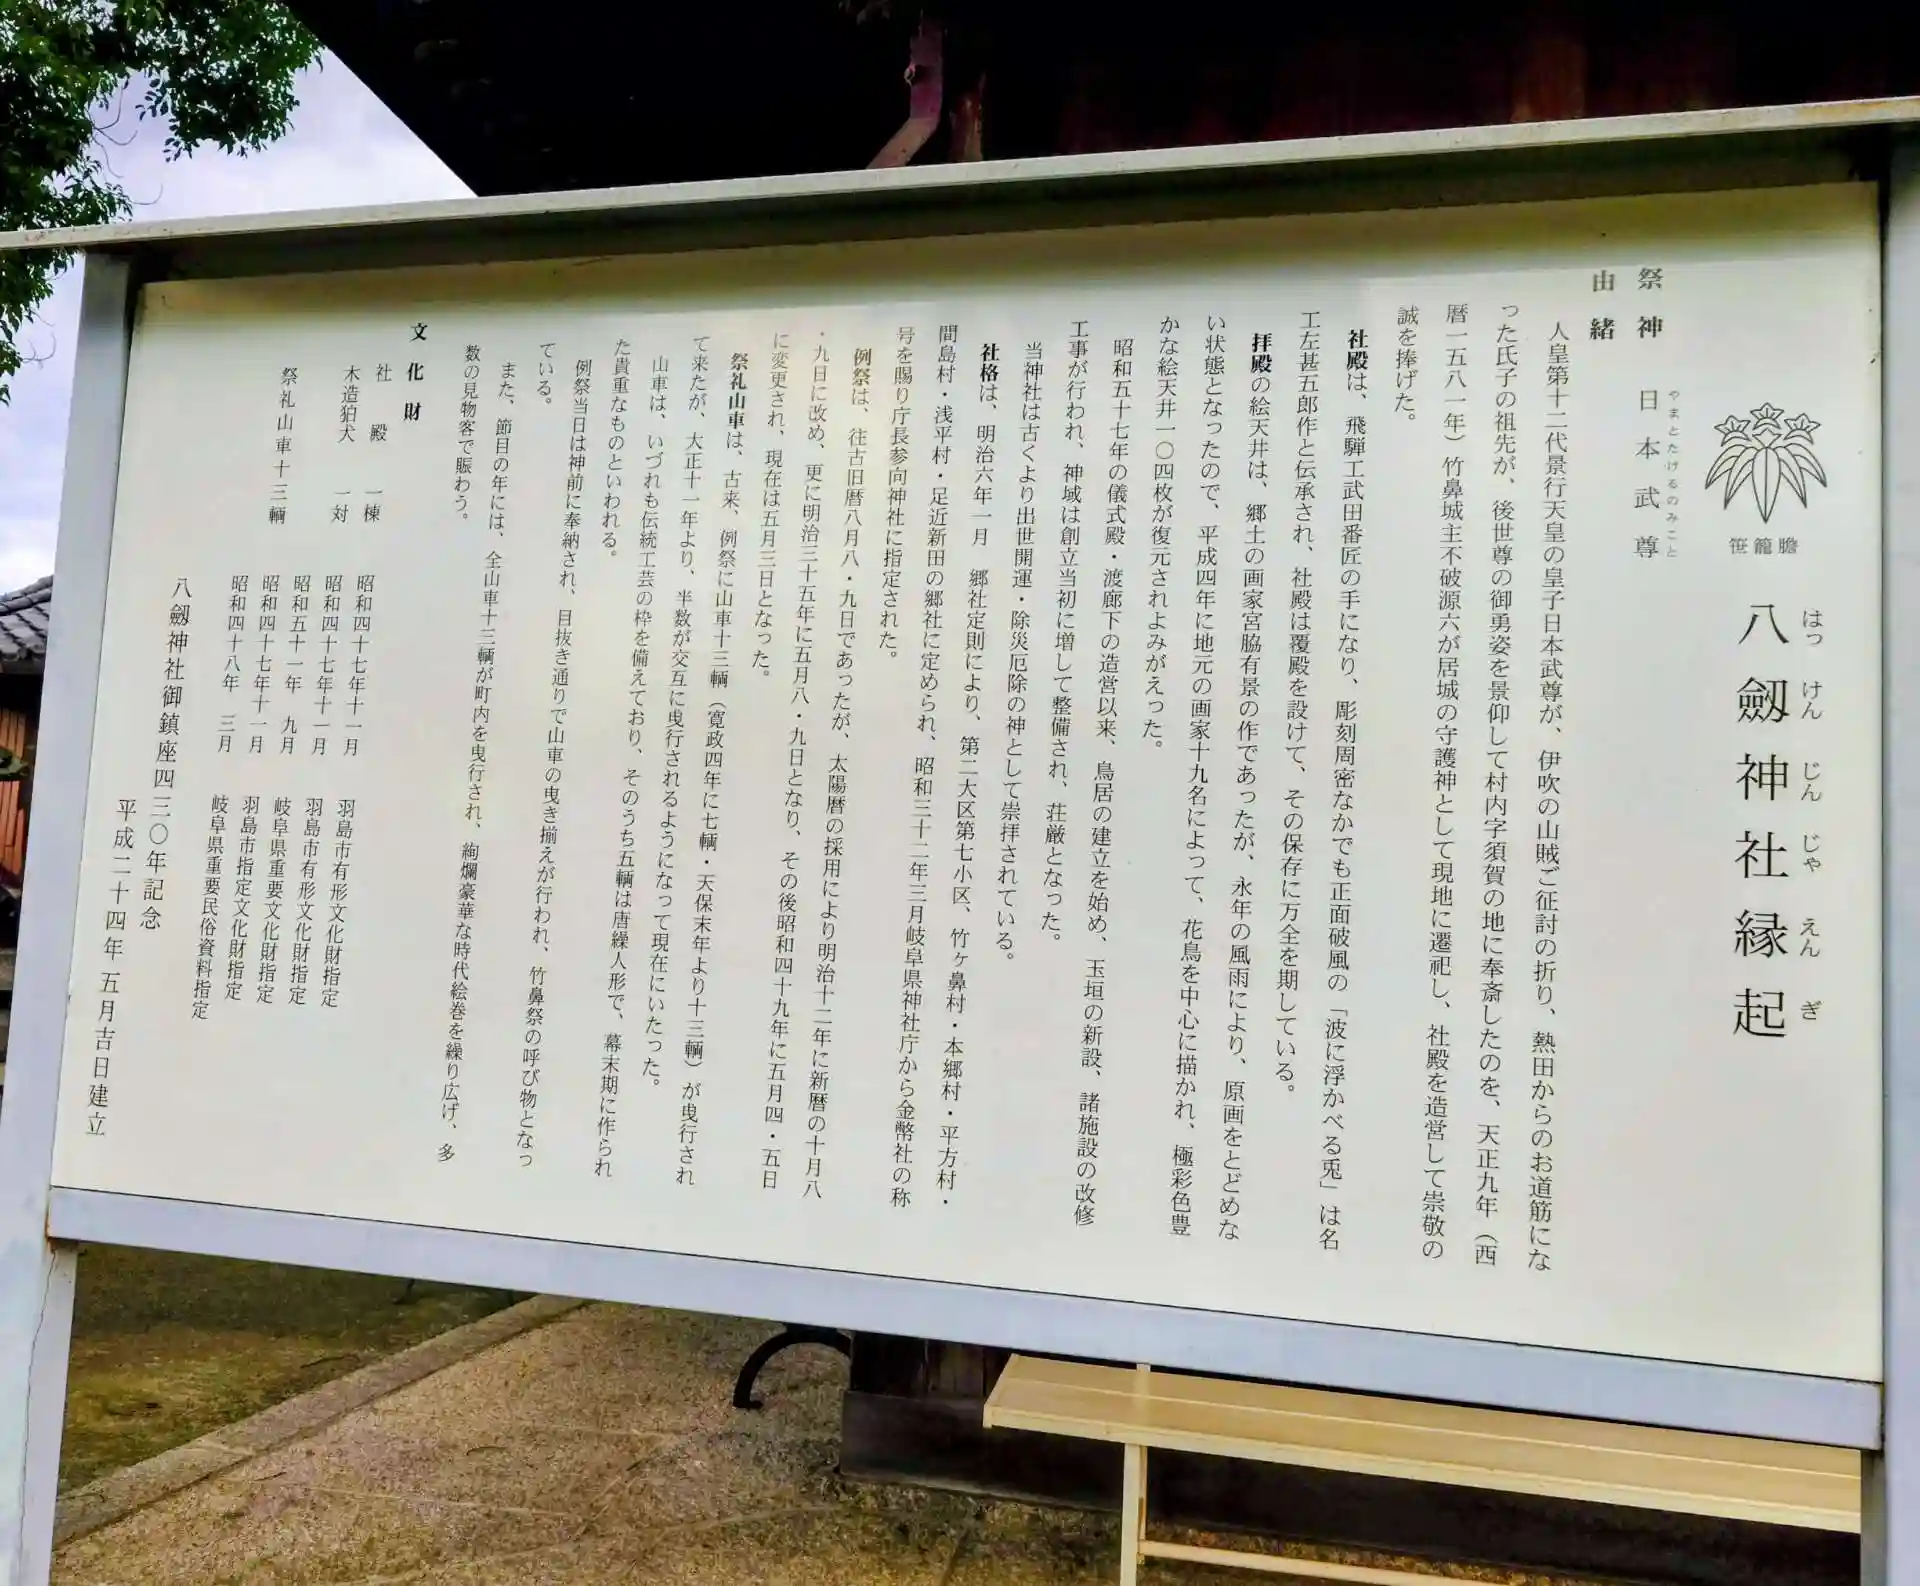 笹龍胆
八劔神社縁起
はっけんじんじゃえんぎ
祭神 日本武尊
やまとたけるのみこと
由緒
人皇第十二代景行天皇の皇子日本武尊が、伊吹の山賊ご征討の折り、熱田からのお道筋にな
った氏子の祖先が、後世尊の御勇姿を景仰して村内字須賀の地に奉斎したのを、天正九年（西
暦一五八一年）竹鼻城主不破源六が居城の守護神として現地に遷祀し、社殿を造営して崇敬の
誠を捧げた。
社殿は、飛騨工武田番匠の手になり、彫刻周密なかでも正面破風の「波に浮かべる兎」は名
工左甚五郎作と伝承され、社殿は覆殿を設けて、その保存に万全を期している。
拝殿の絵天井は、郷土の画家宮脇有景の作であったが、永年の風雨により、原画をとどめな
い状態となったので、平成四年に地元の画家十九名によって、花鳥を中心に描かれ、極彩色豊
かな絵天井一〇四枚が復元されよみがえった。
昭和五十七年の儀式殿・渡廊下の造営以来、鳥居の建立を始め、玉垣の新設、諸施設の改修
工事が行われ、神域は創立当初に増して整備され、荘厳となった。
当神社は古くより出世開運・除災厄除の神として崇拝されている。
社格は、明治六年一月　郷社定則により、第二大区第七小区、竹ヶ鼻村・本郷村・平方村・
間島村・浅平村・足近新田の郷社に定められ、昭和三十二年三月岐阜県神社庁から金幣社の称
号を賜り庁長参向神社に指定された。
例祭は、往古旧暦八月八・九日であったが、太陽暦の採用により明治十二年に新暦の十月八
・九日に改め、更に明治三十五年に五月八・九日となり、その後昭和四十九年に五月四・五日
に変更され、現在は五月三日となった。
祭礼山車は、古来、例祭に山車十三輌（寛政四年に七輌・天保末年より十三輌）が曳行され
て来たが、大正十一年より、半数が交互に曳行されるようになって現在にいたった。
山車は、いづれも伝統工芸の枠を備えており、そのうち五輌は唐繰人形で、幕末期に作られ
た貴重なものといわれる。
例祭当日は神前に奉納され、目抜き通りで山車の曳き揃えが行われ、竹鼻祭の呼び物となっ
ている。
また、節目の年には、全山車十三輌が町内を曳行され、絢爛豪華な時代絵巻を繰り広げ、多
数の見物客で賑わう。
文化財
社殿 一棟 昭和四十七年十一月 羽島市有形文化財指定
木造狛犬 一対 昭和四十七年十一月 羽島市有形文化財指定
昭和五十一年 九月 岐阜県重要文化財指定
祭礼山車十三輌 昭和四十七年十一月 羽島市指定文化財指定
昭和四十八年 三月 岐阜県重要民俗資料指定
八劔神社御鎮座四三〇年記念
平成二十四年 五月吉日建立